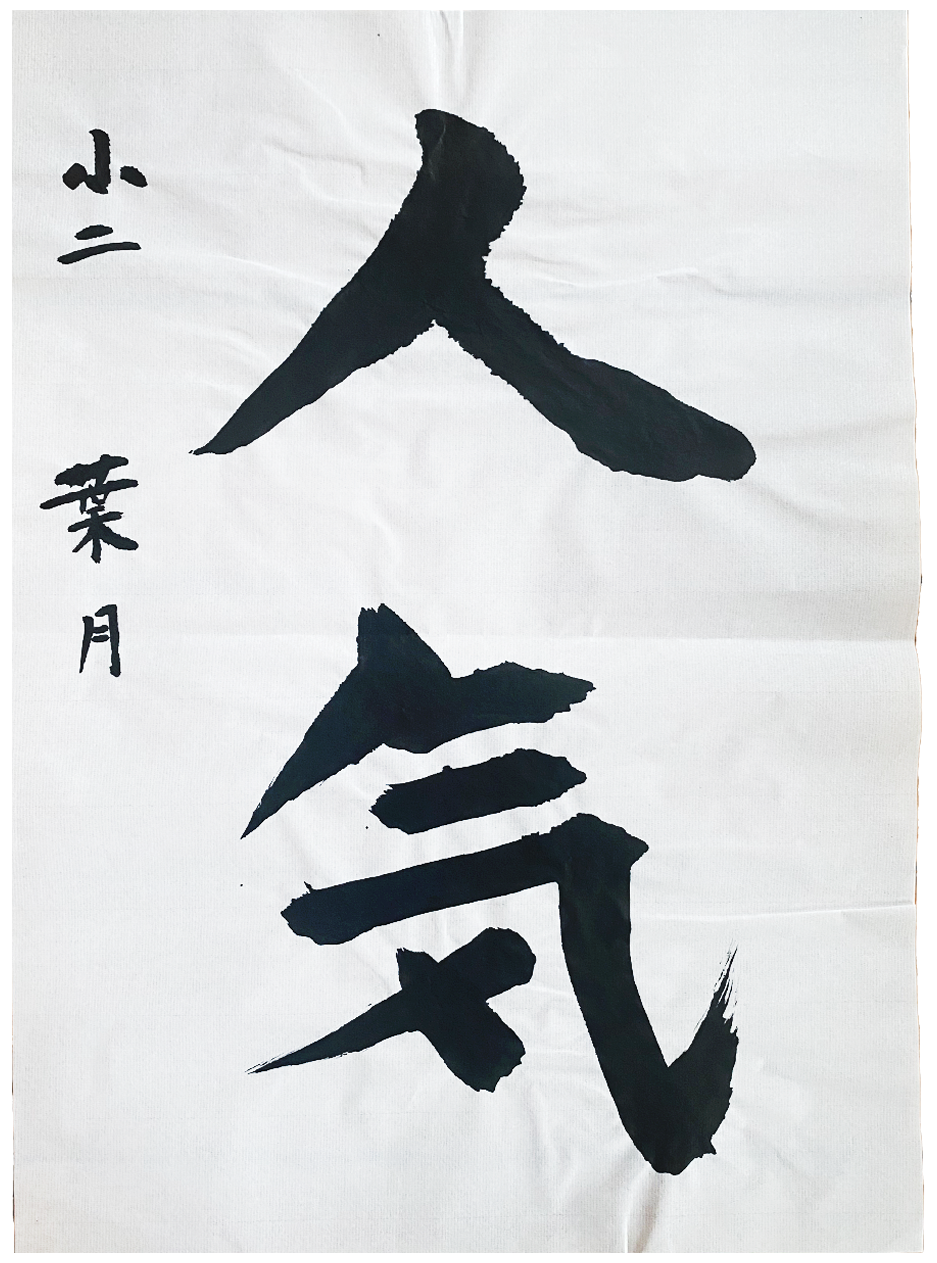 人気
小二 葉月